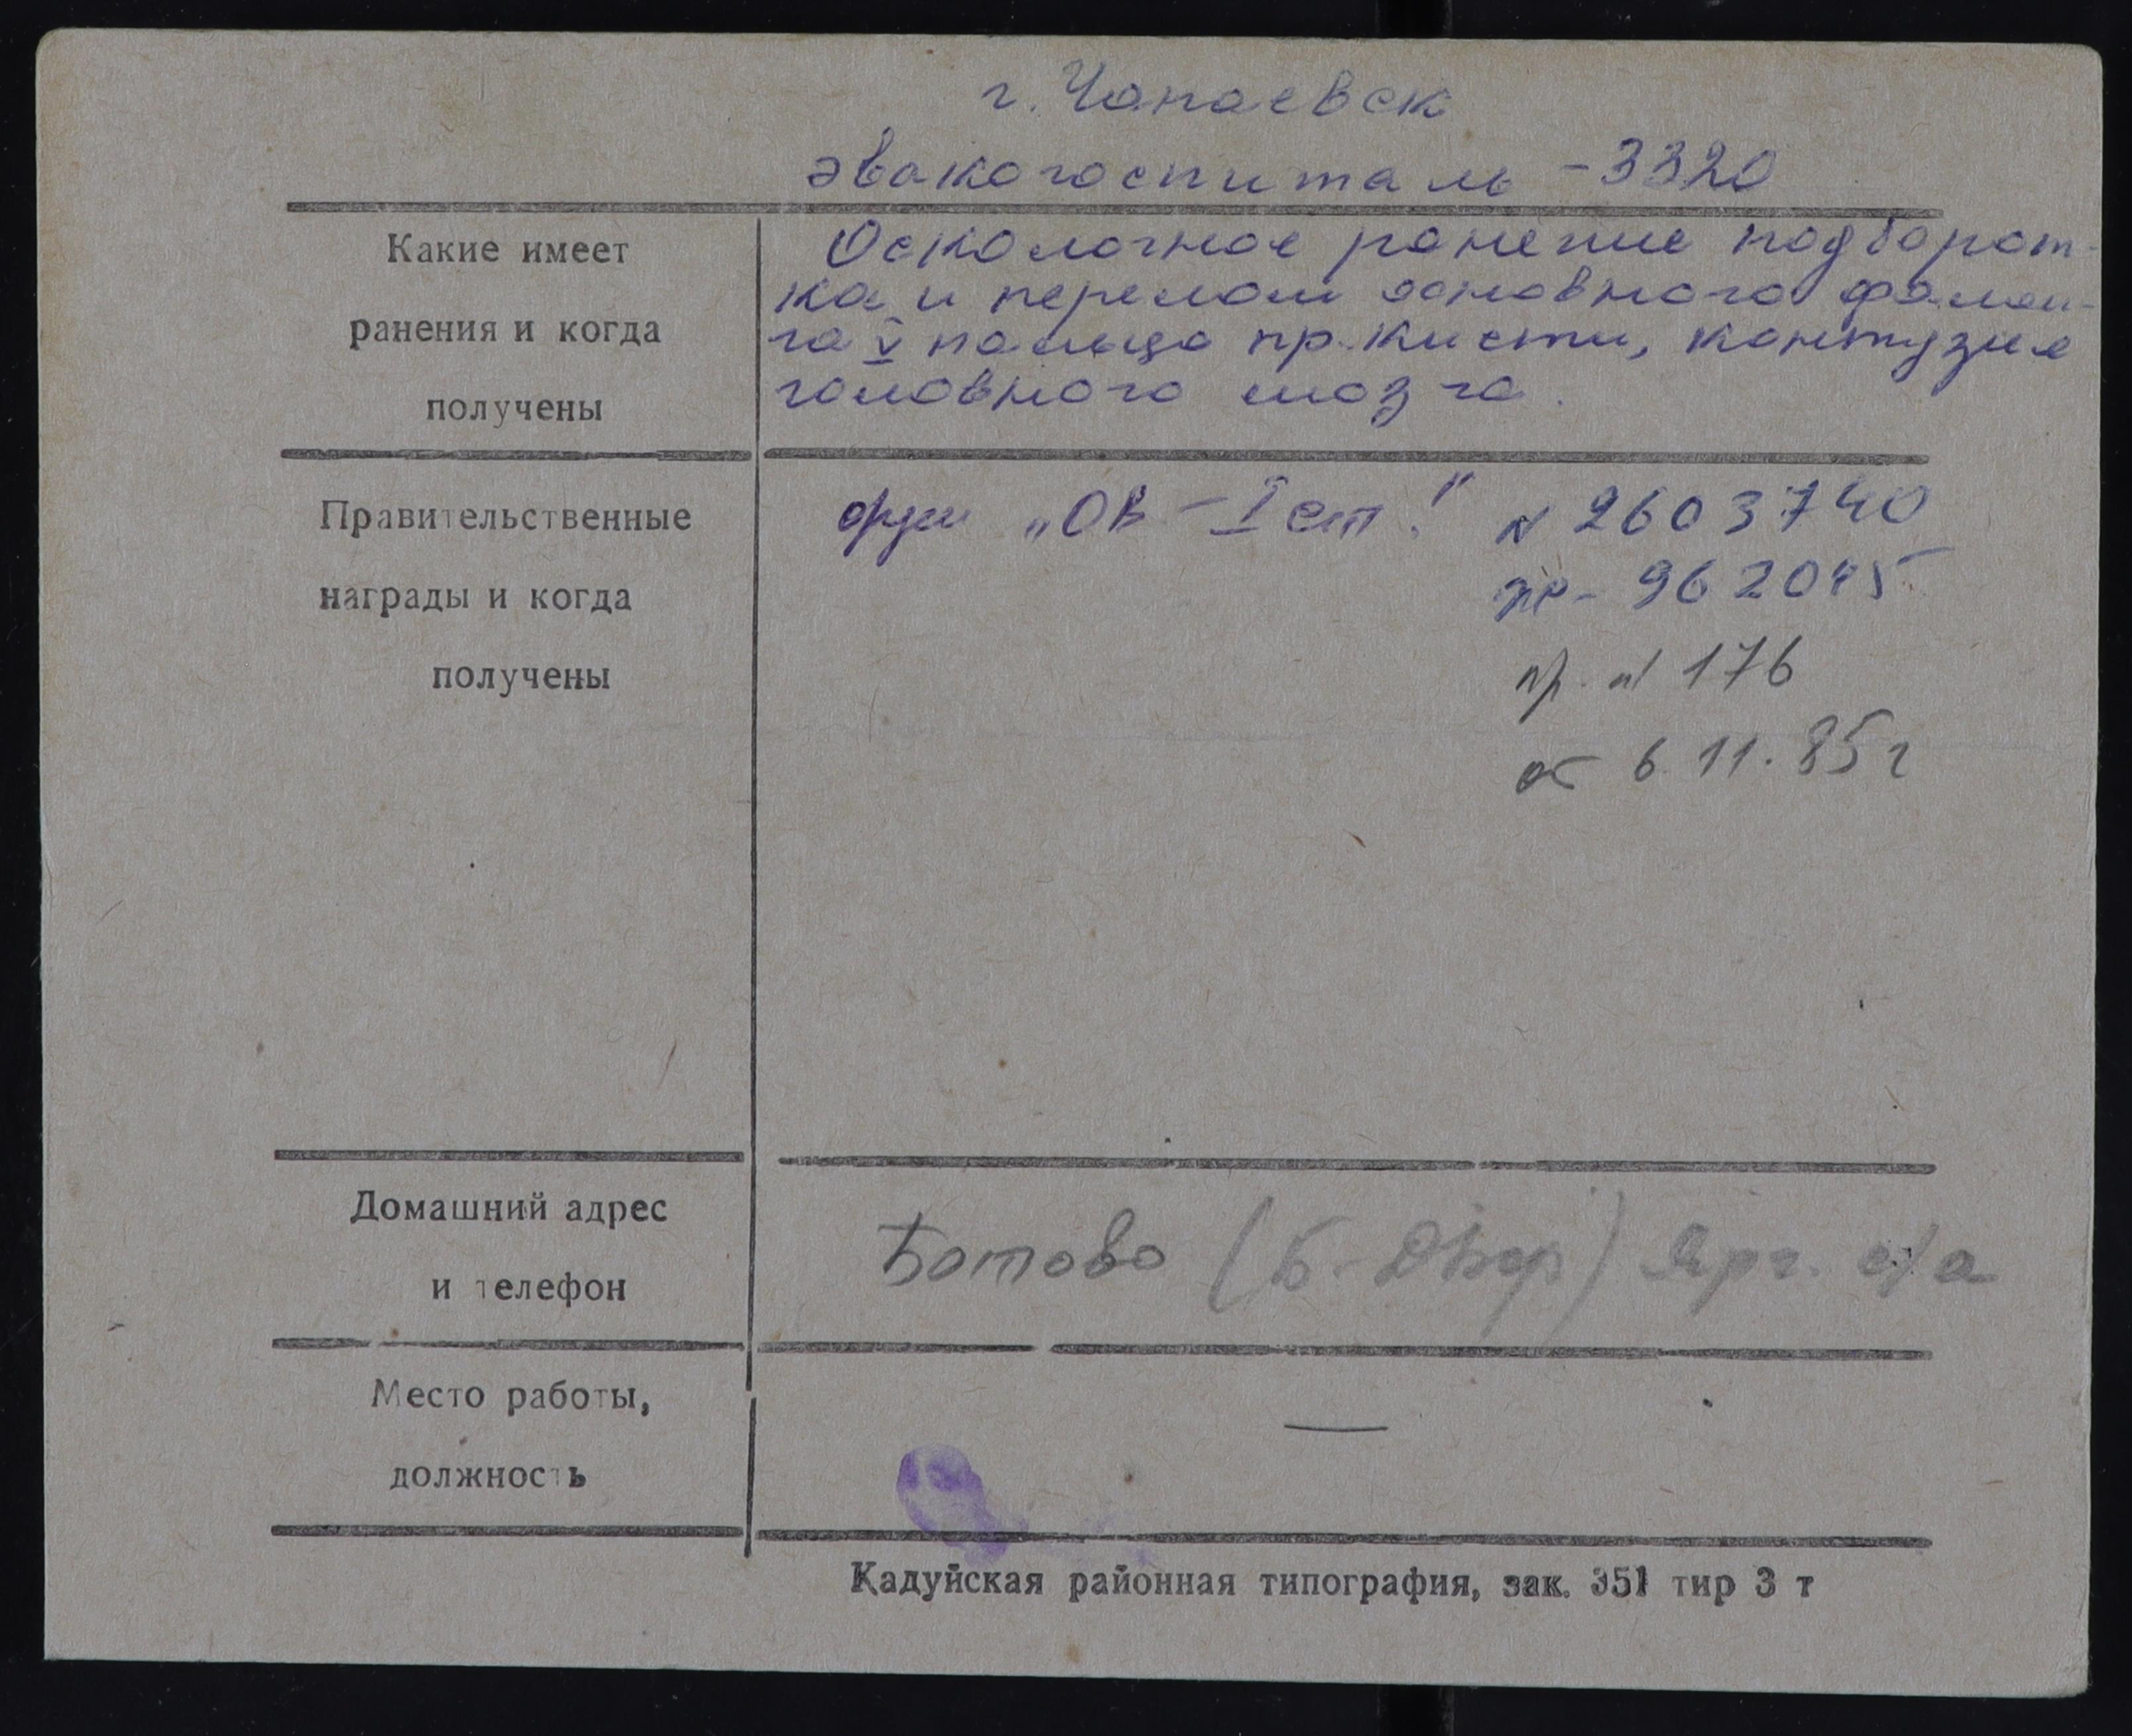 г. Чапаевск
эвакогоспиталь - 3320
Какие имеет
ранения и когда
получены
Осколочное ранение подборот-
ка и перелом основного фалан-
га V пальца пр. кисти, контузия
головного мозга.
Правительственные
награды и когда
получены
орден „ОВ - I ст." № 2603740
962045
пр. № 176
от 6.11.85 г
Домашний адрес
и телефон
Ботово (Б-Двор) Ярг. с/а
Место работы,
должность
—
Кадуйская районная типография, зак. 351 тир 3 т